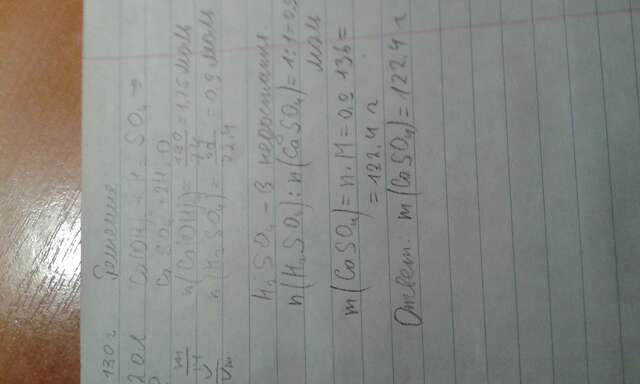 130 г Решение
20 л Ca(OH)₂ + H₂SO₄ →
CaSO₄ + 2H₂O
m/M n(Ca(OH)₂) = 130/74 = 1.75 моль
V/Vm n(H₂SO₄) = 20/22.4 = 0,9 моль
H₂SO₄ – в недостатке
n(H₂SO₄) : n(CaSO₄) = 1:1 = 0,9
моль
m(CaSO₄) = n·M = 0,9 136 =
= 122.4 г
Ответ. m(CaSO₄) = 122.4 г